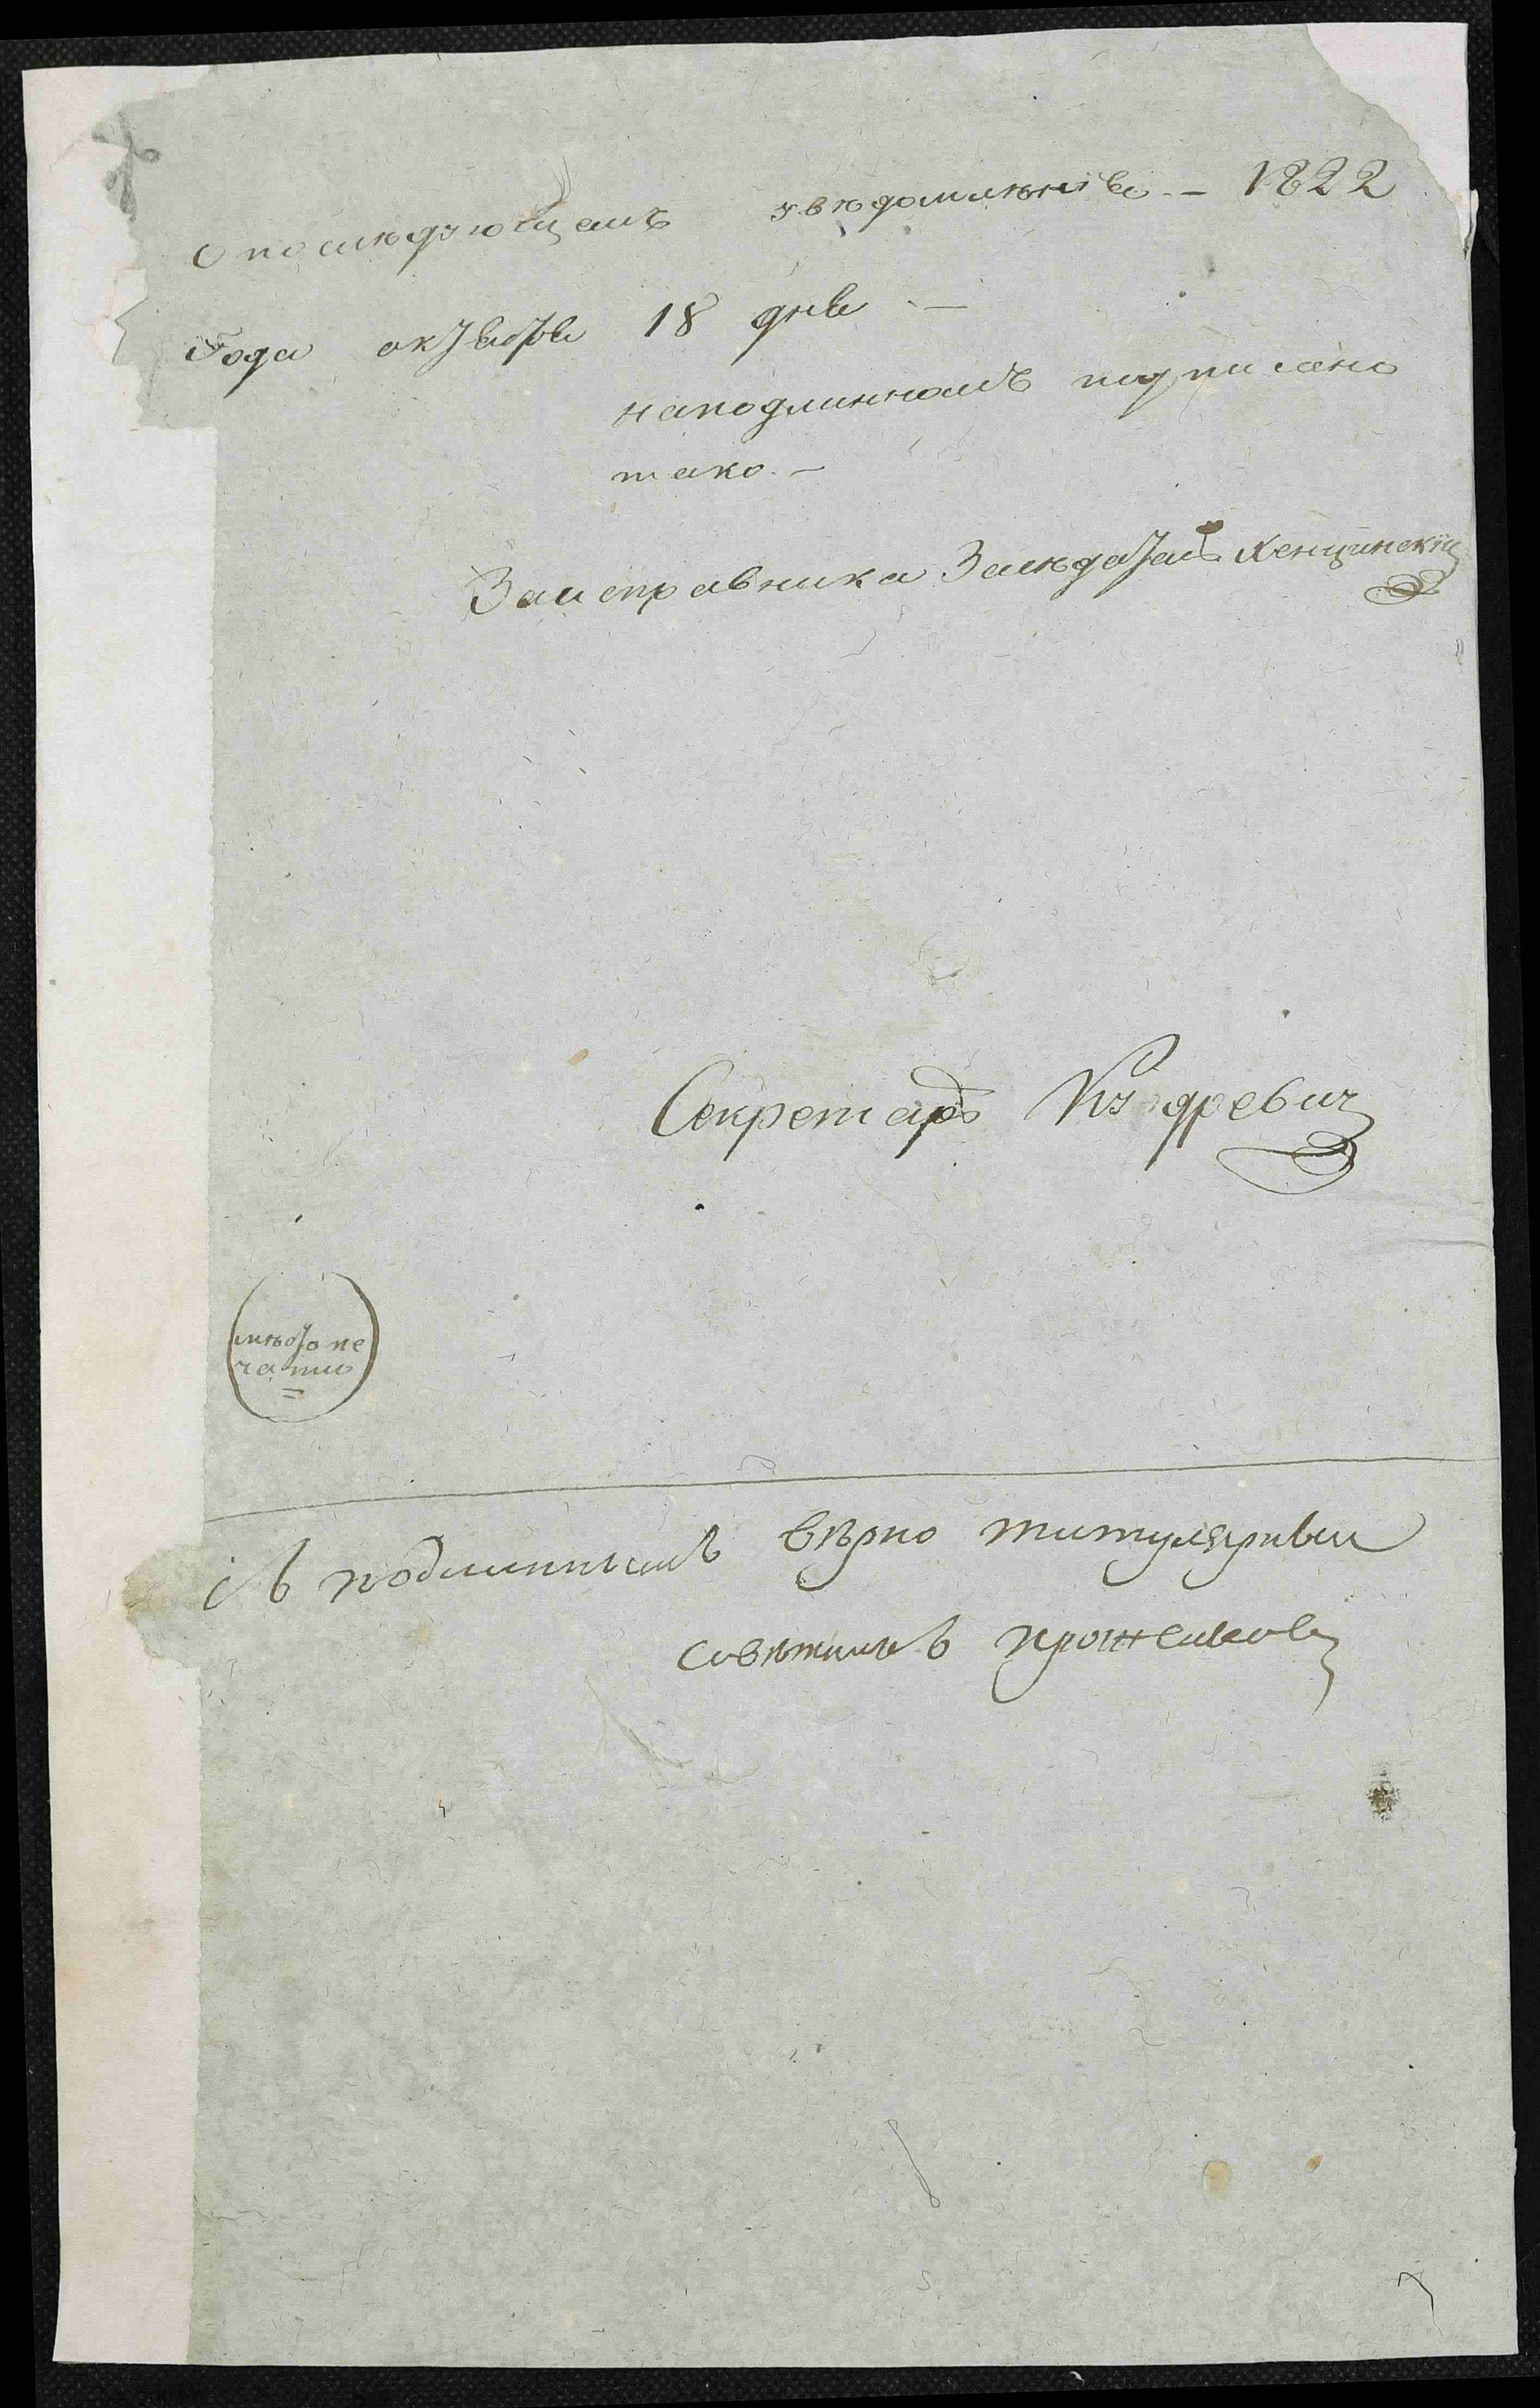 О последующемъ увѣдомленія. — 1822
Года октября 18 дня —
наподлинномъ подписано
тако. —
За исправника Засѣдатель Кенщинскій
Секретарь Кундревич
мѣсто пе
чати
=
Съ подлиннымъ вѣрно титулярный
совѣтникъ